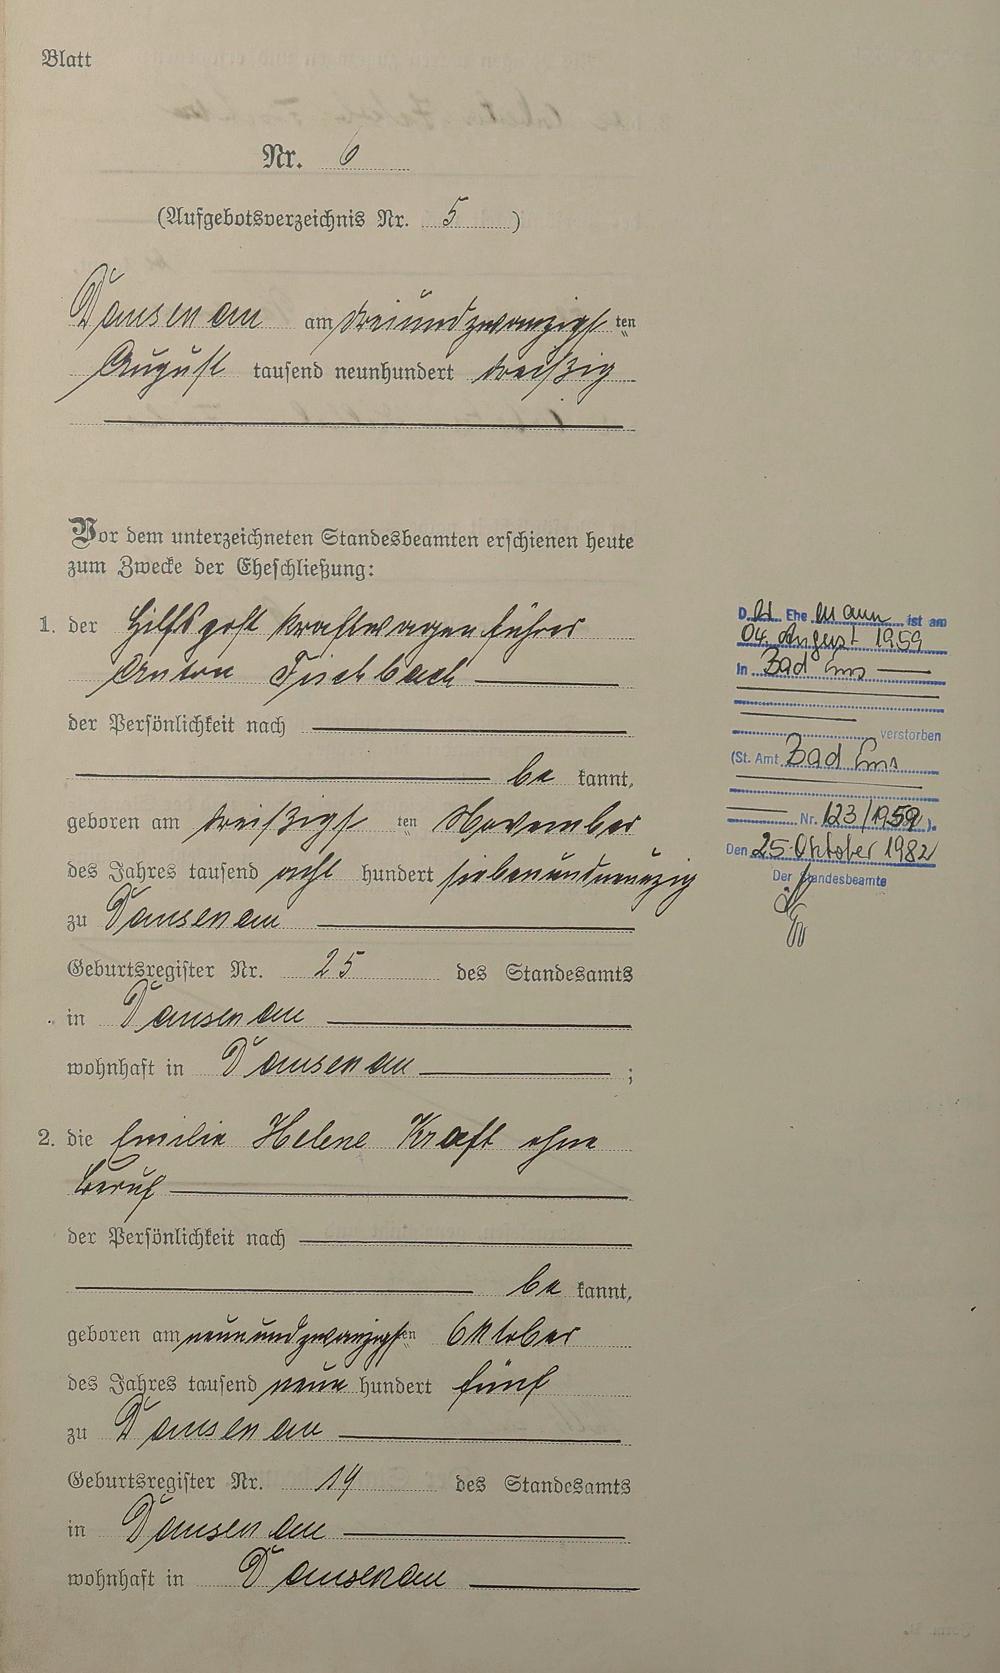 Blatt
Nr. 6
(Aufgebotsverzeichnis Nr. 5)
Dausenau am dreiundzwanzigsten
August tausend neunhundert dreißig
Vor dem unterzeichneten Standesbeamten erschienen heute
zum Zwecke der Eheschließung:
1. der Hilfspostkraftwagenführer
Anton Fischbach
der Persönlichkeit nach
bekannt,
geboren am dreißigsten November
des Jahres tausend acht hundert siebenundneunzig
zu Dausenau
Geburtsregister Nr. 25 des Standesamts
in Dausenau
wohnhaft in Dausenau;
2. die Emilie Helene Kraft ohne
Beruf
der Persönlichkeit nach
bekannt,
geboren am neunundzwanzigsten Oktober
des Jahres tausend neun hundert fünf
zu Dausenau
Geburtsregister Nr. 19 des Standesamts
in Dausenau
wohnhaft in Dausenau
D. er Ehemann ist am
04. August 1959
In Bad Ems
verstorben
(St. Amt Bad Ems
Nr. 123/1959).
Den 25. Oktober 1982
Der Standesbeamte